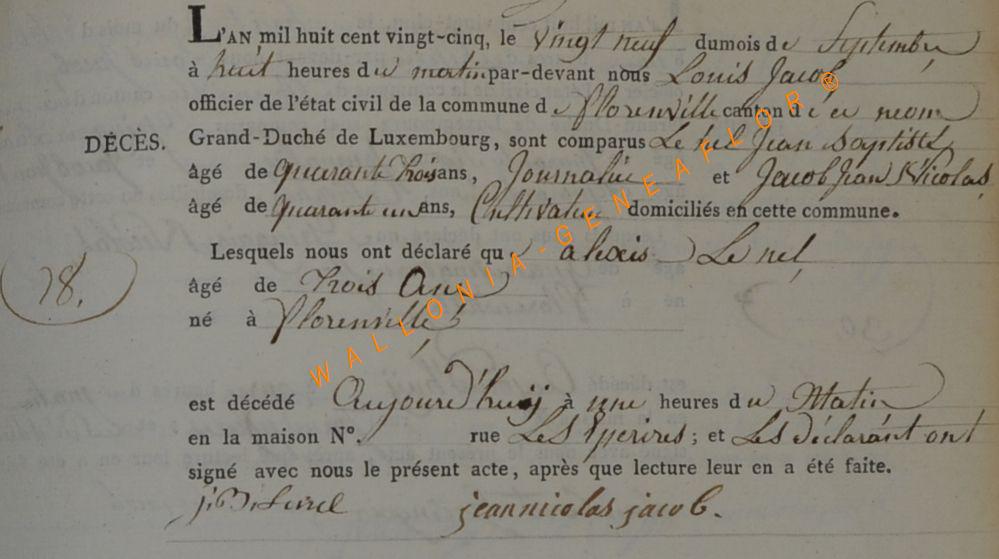 L'AN mil huit cent vingt-cinq, le vingt neuf du mois de Septembre
à huit heures du matin par-devant nous Louis Jacob
officier de l'état civil de la commune de florenville canton d
DÉCÈS. Grand-Duché de Luxembourg, sont comparus Le nel Jean Baptiste
âgé de quarante trois ans, Journalie et Jacob Jean Nicolas
âgé de quarante un ans, Cultivateur domiciliés en cette commune.
Lesquels nous ont déclaré que alexis Le nel
78.
âgé de trois Ans
né à florenville
est décédé Aujourd'huy à une heures du Matin
en la maison N°. rue Les ; et Les déclarant ont
signé avec nous le présent acte, après que lecture leur en a été faite.
j. B. jeannicolas jacob.
WALLONIA-GENEAFLOR®